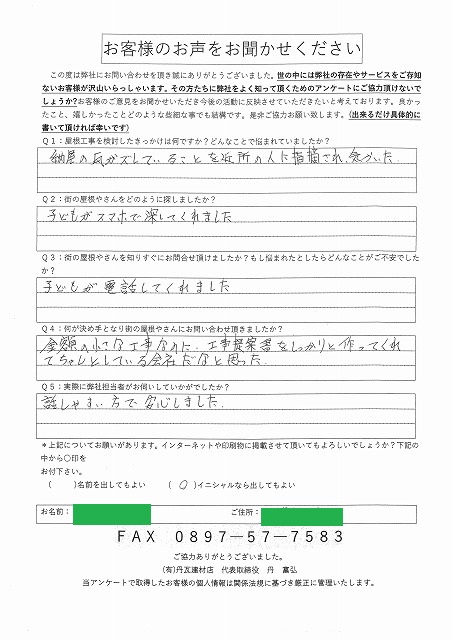 お客様のお声をお聞かせください
この度は弊社にお問い合わせを頂き誠にありがとうございました。世の中には弊社の存在やサービスをご存知
ないお客様が沢山いらっしゃいます。その方たちに弊社をよく知って頂くためのアンケートにご協力頂けないで
しょうか?お客様のご意見をお聞かせいただき今後の活動に反映させていただきたいと考えております。良かっ
たこと、嬉しかったことどのような些細な事でも結構です。是非ご協力お願い致します。(出来るだけ具体的に
書いて頂ければ幸いです)
Q1:屋根工事を検討したきっかけは何ですか?どんなことで悩まれていましたか?
納屋の瓦がズレしていることを近所の人に指摘され、気づいた。
Q2:街の屋根やさんをどのように探しましたか?
子どもがスマホで探してくれました
Q3:街の屋根やさんを知りすぐにお問合せ頂けましたか?もし悩まれたとしたらどんなことがご不安でした
か?
子どもが電話してくれました
Q4:何が決め手となり街の屋根やさんにお問い合わせ頂きましたか?
金額の小さな工事なのに、工事提案書をしっかりと作ってくれ
てちゃんとしている会社だなと思った。
Q5:実際に弊社担当者がお伺いしていかがでしたか?
話しやすい方で安心しました。
*上記についてお願いがあります。インターネットや印刷物に掲載させて頂いてもよろしいでしょうか?下記の
中から〇印を
お付下さい。
( )名前を出してもよい ( 〇 )イニシャルなら出してもよい
お名前: ご住所:
FAX 0897-57-7583
ご協力ありがとうございました。
(有)丹瓦建材店 代表取締役 丹 富弘
当アンケートで取得したお客様の個人情報は関係法規に基づき厳正に管理いたします。